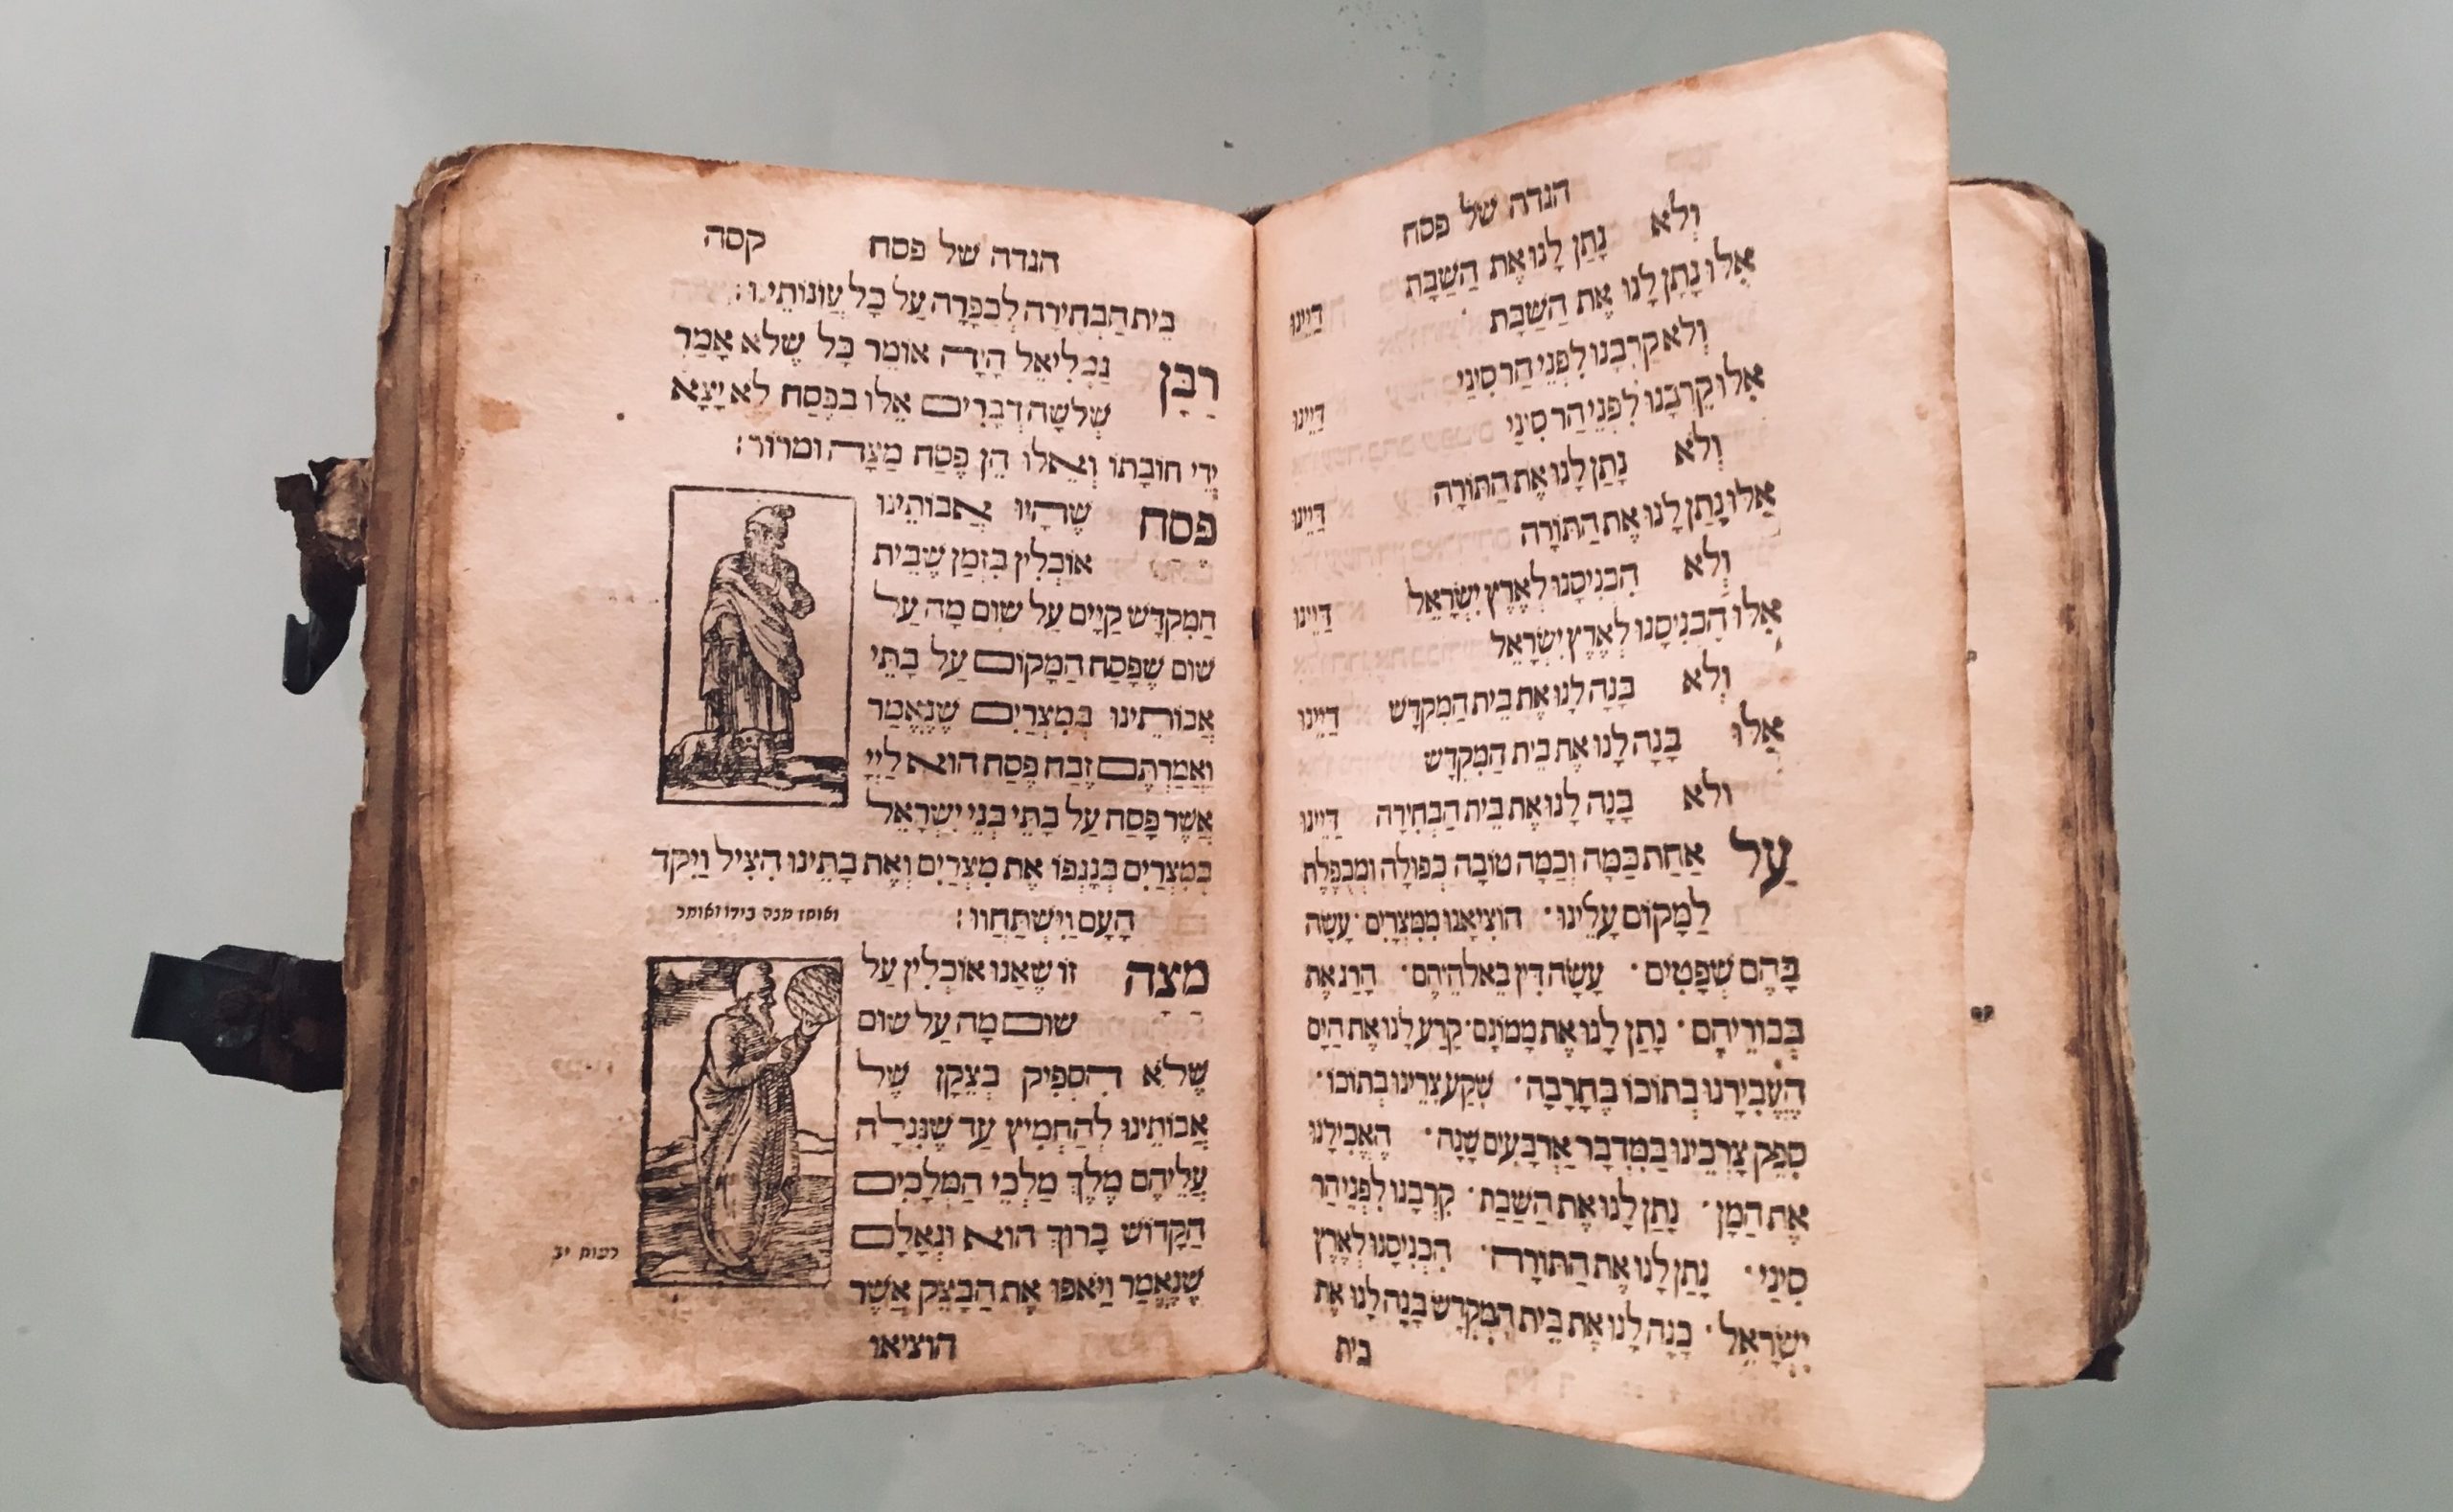 הגדה של פסח
וְלֹא נָתַן לָנוּ אֶת הַשַׁבָּת דַּיֵּינוּ
אִלּוּ נָתַן לָנוּ אֶת הַשַׁבָּת
וְלֹא קֵרְבָנוּ לִפְנֵי הַר סִינַי דַּיֵּינוּ
אִלּוּ קֵרְבָנוּ לִפְנֵי הַר סִינַי
וְלֹא נָתַן לָנוּ אֶת הַתּוֹרָה דַּיֵּינוּ
אִלּוּ נָתַן לָנוּ אֶת הַתּוֹרָה
וְלֹא הִכְנִיסָנוּ לְאֶרֶץ יִשְׂרָאֵל דַּיֵּינוּ
אִלּוּ הִכְנִיסָנוּ לְאֶרֶץ יִשְׂרָאֵל
וְלֹא בָּנָה לָנוּ אֶת בֵּית הַמִּקְדָּשׁ דַּיֵּינוּ
אִלּוּ בָּנָה לָנוּ אֶת בֵּית הַמִּקְדָּשׁ
וְלֹא בָּנָה לָנוּ אֶת בֵּית הַבְּחִירָה דַּיֵּינוּ
עַל אַחַת כַּמָּה וְכַמָּה טוֹבָה כְּפוּלָה וּמְכֻפֶּלֶת
לַמָּקוֹם עָלֵינוּ · הוֹצִיאָנוּ מִמִּצְרַיִם · עָשָׂה
בָּהֶם שְׁפָטִים · עָשָׂה דִּין בֵּאלֹהֵיהֶם · הָרַג אֶת
בְּכוֹרֵיהֶם · נָתַן לָנוּ אֶת מָמוֹנָם · קָרַע לָנוּ אֶת הַיָּם
הֶעֱבִירָנוּ בְּתוֹכוֹ בֶּחָרָבָה · שִׁקַּע צָרֵינוּ בְּתוֹכוֹ ·
סִפֵּק צָרְכֵּינוּ בַּמִּדְבָּר אַרְבָּעִים שָׁנָה · הֶאֱכִילָנוּ
אֶת הַמָּן · נָתַן לָנוּ אֶת הַשַׁבָּת · קֵרְבָנוּ לִפְנֵי הַר
סִינַי · נָתַן לָנוּ אֶת הַתּוֹרָה · הִכְנִיסָנוּ לְאֶרֶץ
יִשְׂרָאֵל · בָּנָה לָנוּ אֶת בֵּית הַמִּקְדָּשׁ בָּנָה לָנוּ אֶת
בית
הגדה של פסח קסה
בֵּית הַבְּחִירָה לְכַפָּרָה עַל כָּל עֲוֹנוֹתֵינוּ :
רַבָּן גַּמְלִיאֵל הָיָה אוֹמֵר כָּל שֶׁלֹּא אָמַר
שְׁלֹשָׁה דְּבָרִים אֵלּוּ בַּפֶּסַח לֹא יָצָא
יְדֵי חוֹבָתוֹ וְאֵלּוּ הֵן פֶּסַח מַצָּה וּמָרוֹר :
פֶּסַח שֶׁהָיוּ אֲבוֹתֵינוּ
אוֹכְלִין בִּזְמַן שֶׁבֵּית
הַמִּקְדָּשׁ קַיָּים עַל שׁוּם מָה עַל
שׁוּם שֶׁפָּסַח הַמָּקוֹם עַל בָּתֵּי
אֲבוֹתֵינוּ בְּמִצְרַיִם שֶׁנֶּאֱמַר
וַאֲמַרְתֶּם זֶבַח פֶּסַח הוּא לַיְיָ
אֲשֶׁר פָּסַח עַל בָּתֵּי בְּנֵי יִשְׂרָאֵל
בְּמִצְרַיִם בְּנָגְפּוֹ אֶת מִצְרַיִם וְאֶת בָּתֵּינוּ הִצִּיל וַיִּקֹּד
הָעָם וַיִּשְׁתַּחֲווּ : ואוחז מצה בידו ואומר
מַצָּה זוֹ שֶׁאָנוּ אוֹכְלִין עַל
שׁוּם מָה עַל שׁוּם
שֶׁלֹּא הִסְפִּיק בְּצֵקָן שֶׁל
אֲבוֹתֵינוּ לְהַחְמִיץ עַד שֶׁנִּגְלָה
עֲלֵיהֶם מֶלֶךְ מַלְכֵי הַמְּלָכִים
הַקָּדוֹשׁ בָּרוּךְ הוּא וּגְאָלָם
שֶׁנֶּאֱמַר וַיֹּאפוּ אֶת הַבָּצֵק אֲשֶׁר
שמות יב
הוציאו